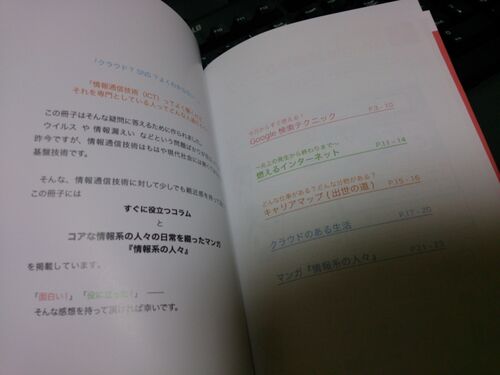 「クラウド？SNS？よくわからない
「情報通信技術（ICT）ってよく聞く
それを専門としている人ってどんな人
この冊子はそんな疑問に答えるために作られました。
ウイルス や 情報漏えい などという問題ばかりが
昨今ですが、情報通信技術はもはや現代社会には
基盤技術です。
そんな、情報通信技術に対して少しでも親近感を持って
この冊子には
すぐに役立つコラム
と
コアな情報系の人々の日常を綴ったマンガ
『情報系の人々』
を掲載しています。
「面白い！」「役に立った！」 ――
そんな感想を持って頂ければ幸いです。
今日からすぐ使える！
Google 検索テクニック P.3-10
～炎上の発生から終わりまで～
燃えるインターネット P.11-14
どんな仕事がある？どんな分野がある？
キャリアマップ（出世の道） P.15-16
クラウドのある生活 P.17-20
マンガ『情報系の人々』 P.21-23